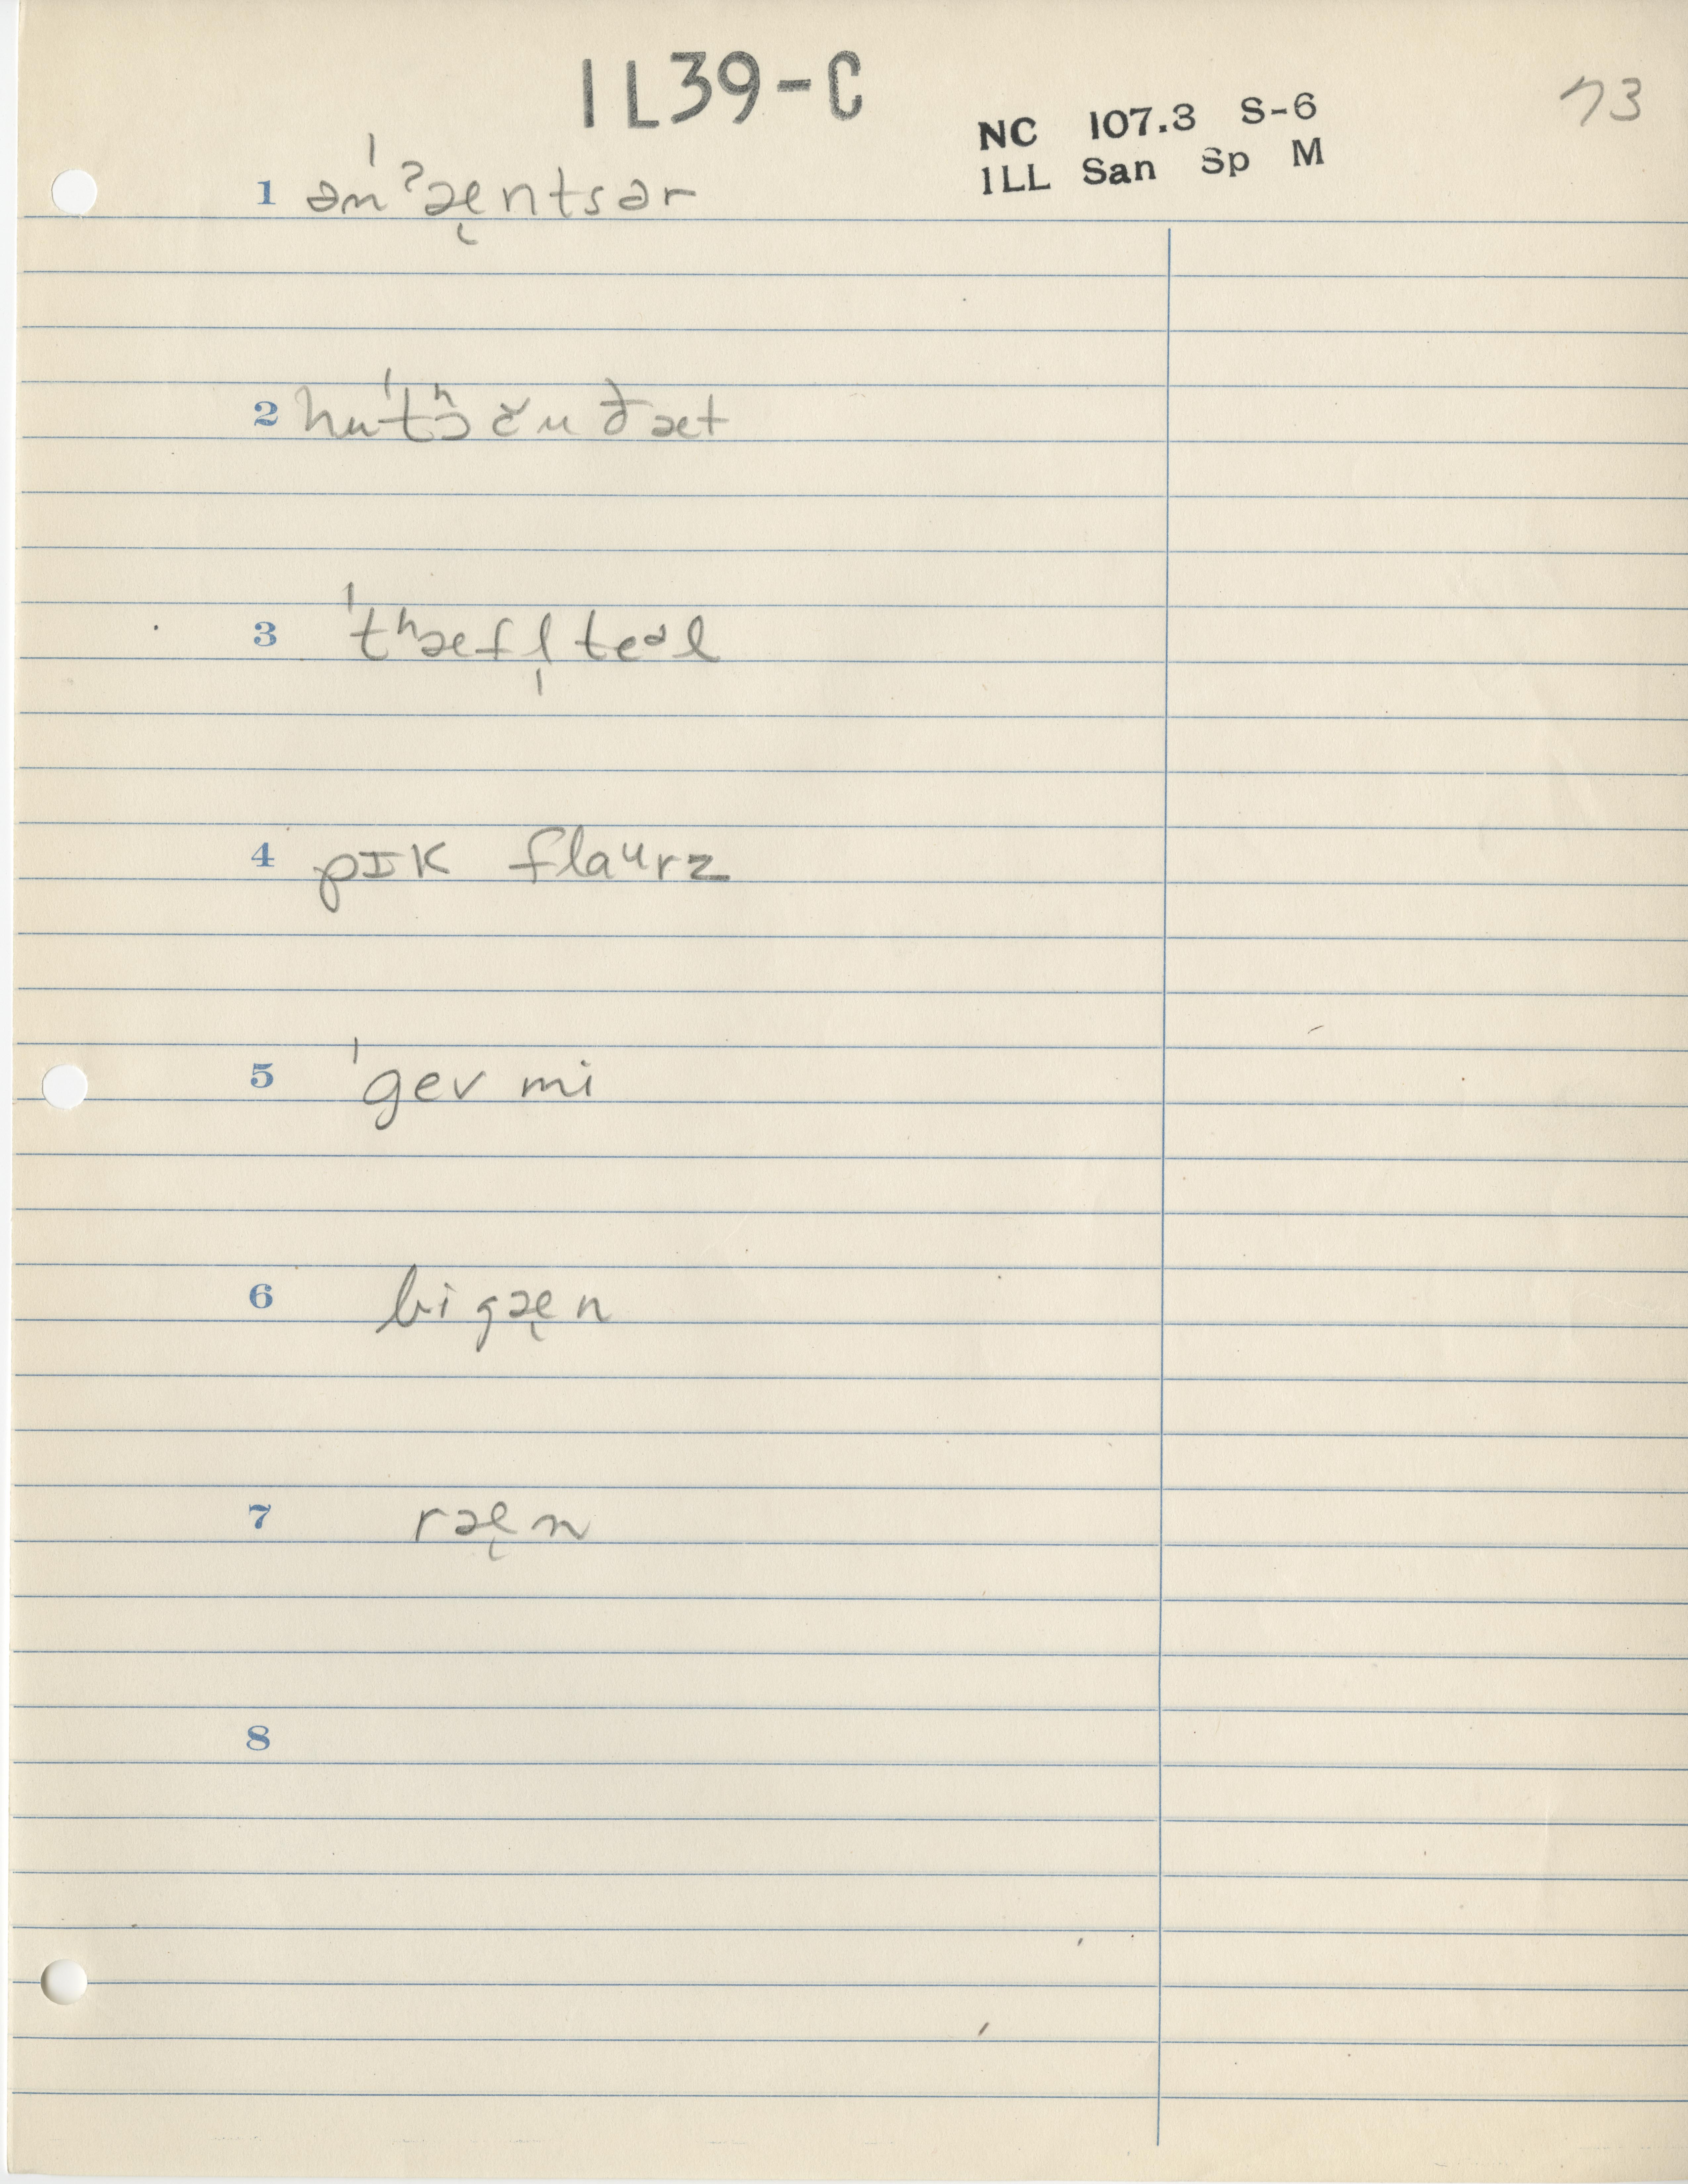 1L39-C
NC 107.3 S-6
1LL San Sp M
73
1 ənˈˀæ̨ntsər
2 huˈtʰɔčuðæt
3 ˈtʰæfl̩teᵊl
4 pɪk flaᵘrz
5 ˈgev mi
6 bigæ̨n
7 ræ̨n
8